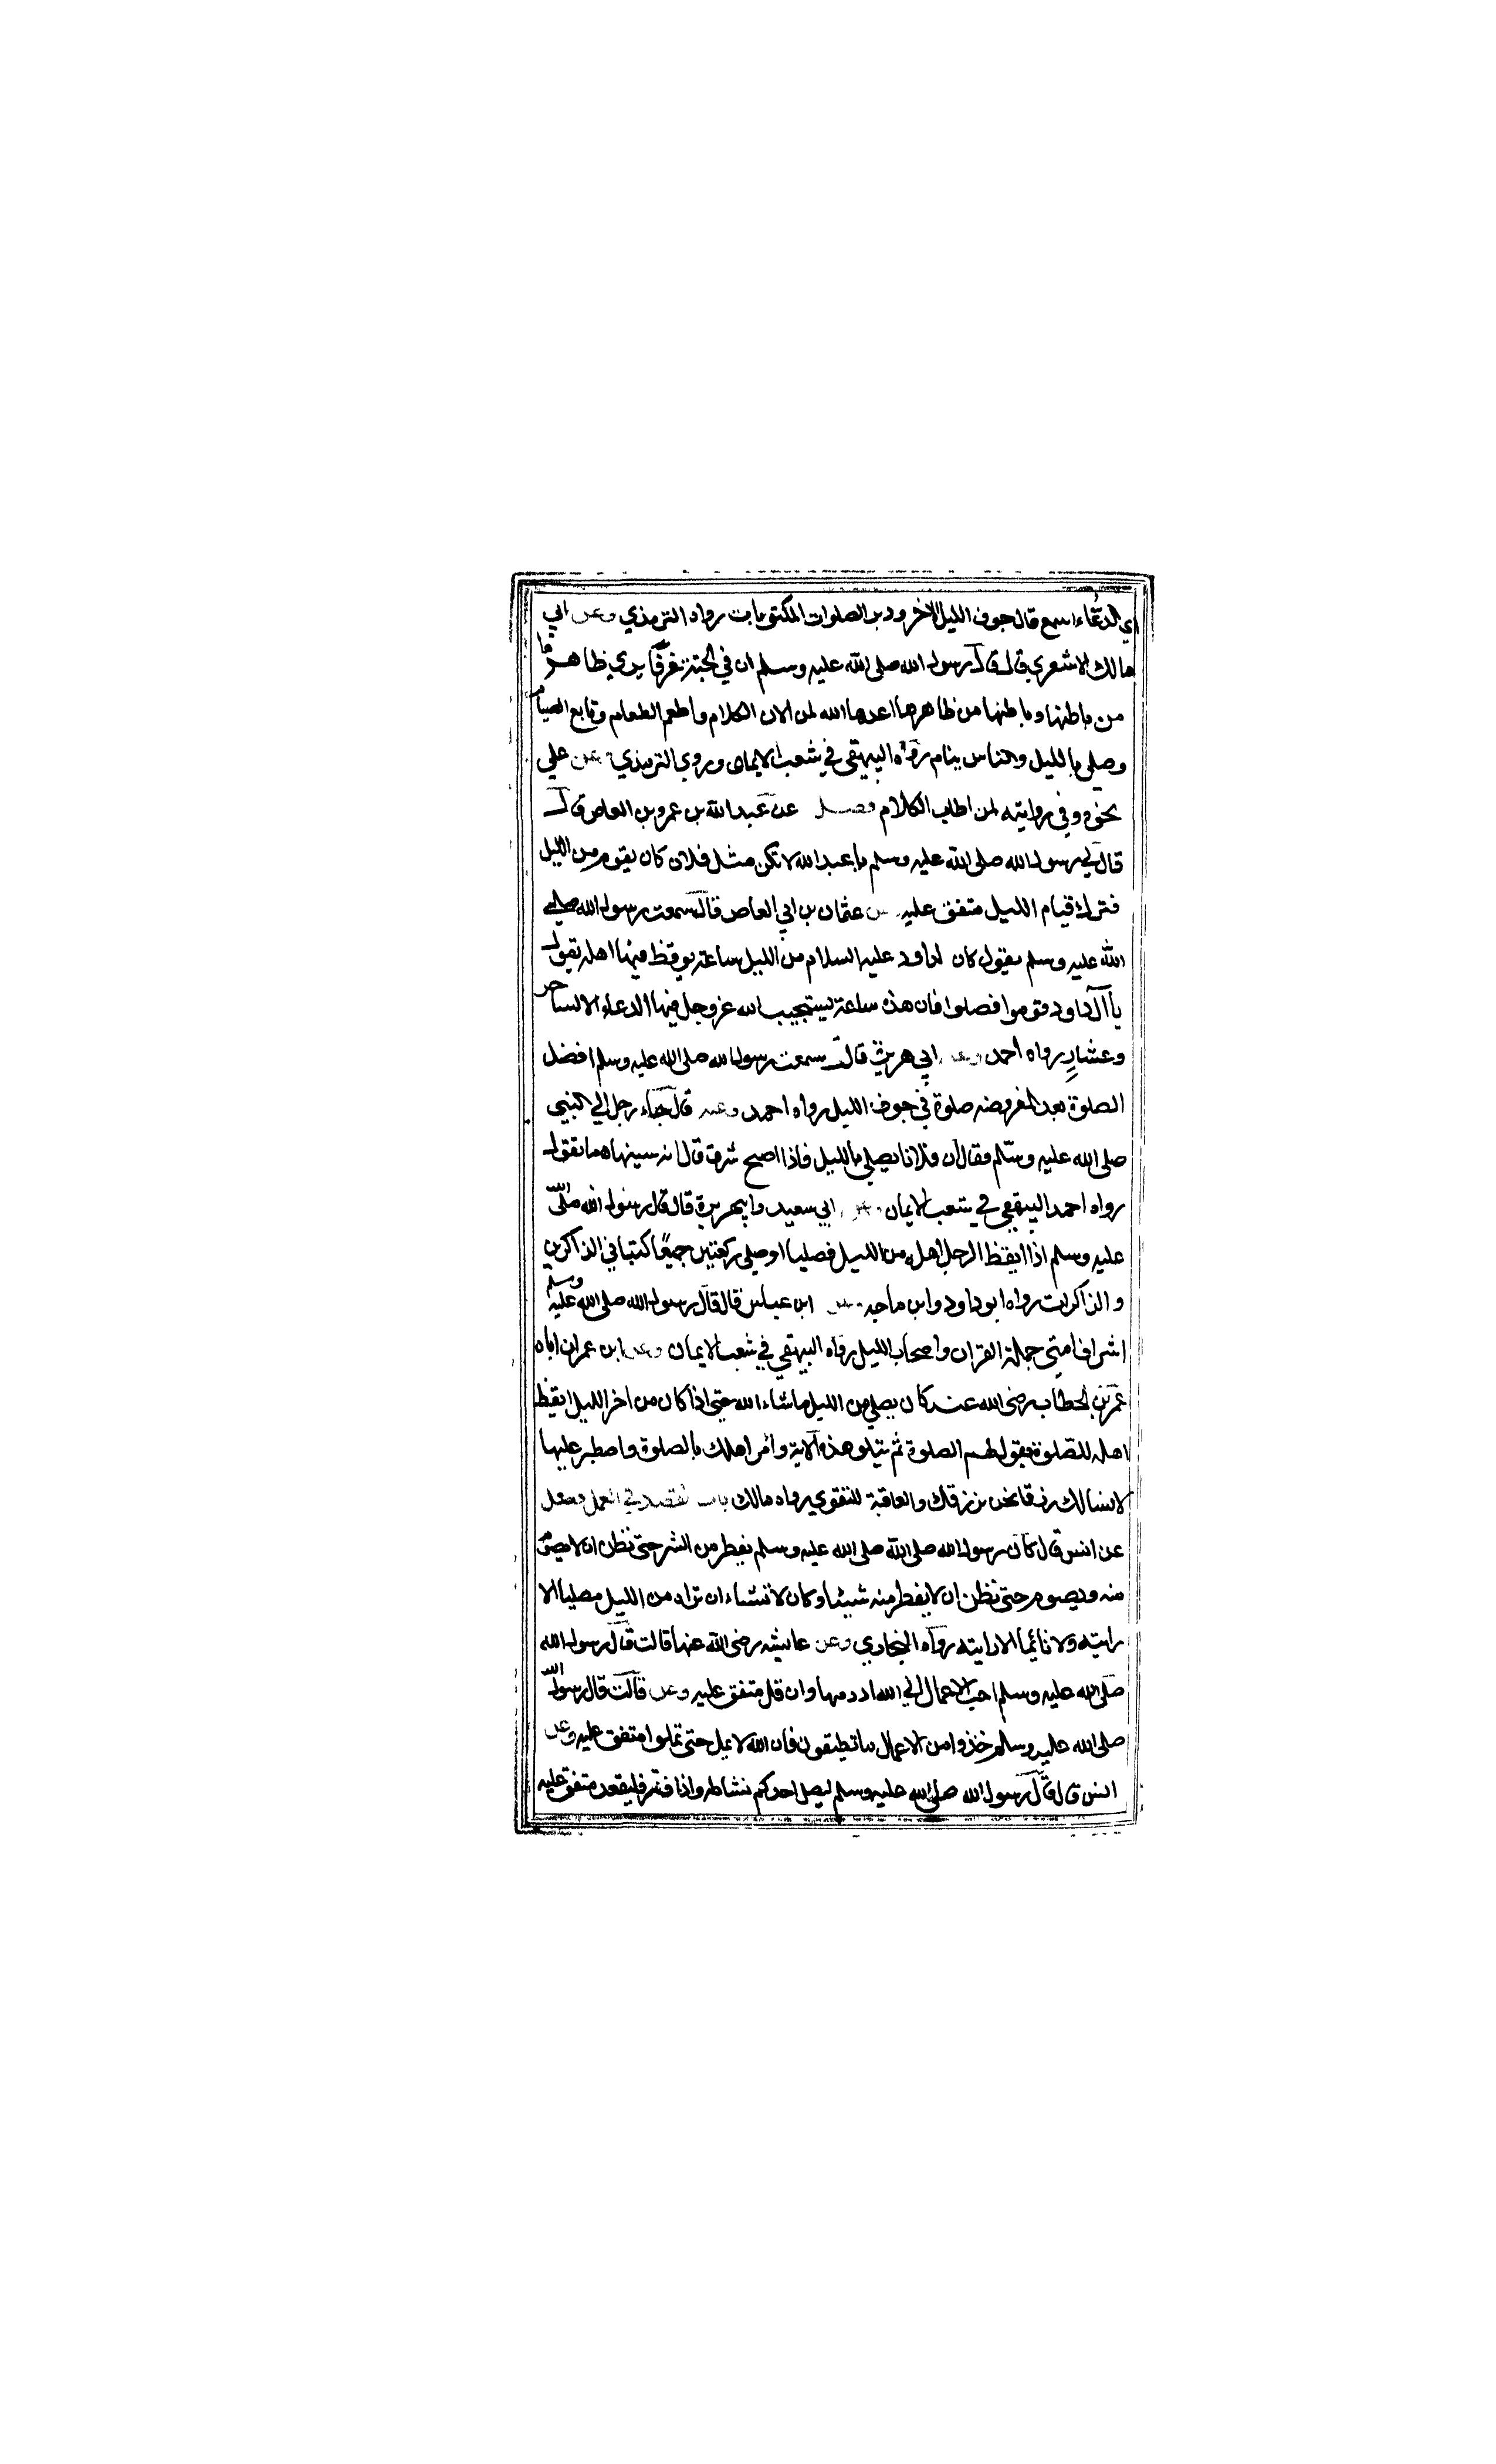 اي الدعاء اسمع قال جوف الليل الاخر ودبر الصلوات المكتوبات رواه الترمذي وعن ابي
مالك الاشعري قال قال رسول الله صلى الله عليه وسلم ان في الجنة غرفا يري ظاهرها
من باطنها وباطنها من ظاهرها اعدها الله لمن الان الكلام واطعم الطعام وتابع الصيام
وصلى بالليل والناس ينام رواه البيهقي في شعب الايمان وروي الترمذي عن علي
نحوه وفي روايته لمن اطاب الكلام فصل عن عبد الله بن عمرو بن العاص قال
قال لي رسول الله صلى الله عليه وسلم يا عبد الله لا تكن مثل فلان كان يقوم من الليل
فترك قيام الليل متفق عليه عن عثمان بن ابي العاص قال سمعت رسول الله صلى
الله عليه وسلم يقول كان لداود عليه السلام من الليل ساعة يوقظ فيها اهله يقول
يا آل داود قوموا فصلوا فان هذه ساعة يستجيب الله عز وجل فيها الدعاء الا لساحر
وعشار رواه احمد وعن ابي هريرة قال سمعت رسول الله صلى الله عليه وسلم افضل
الصلوة بعد المفروضة صلوة في جوف الليل رواه احمد وعنه قال جاء رجل الي النبي
صلى الله عليه وسلم فقال ان فلانا يصلي بالليل فاذا اصبح سرق قال انه سينهاه ما تقول
رواه احمد البيهقي في شعب الايمان وعن ابي سعيد وابي هريرة قال قال رسول الله صلى الله
عليه وسلم اذا ايقظ الرجل اهله من الليل فصليا او صلى ركعتين جميعا كتبا في الذاكرين
والذاكرات رواه ابو داود وابن ماجه وعن ابن عباس قال قال رسول الله صلى الله عليه وسلم
اشراف امتي حملة القران واصحاب الليل رواه البيهقي في شعب الايمان وعن ابن عمر ان اباه
عمر بن الخطاب رضى الله عنه كان يصلي من الليل ما شاء الله حتى اذا كان من اخر الليل ايقظ
اهله للصلوة يقول لهم الصلوة ثم يتلو هذه الاية وامر اهلك بالصلوة واصطبر عليها
لا نسالك رزقا نحن نرزقك والعاقبة للتقوي رواه مالك باب القصد في العمل فصل
عن انس قال كان رسول الله صلى الله صلى الله عليه وسلم يفطر من الشهر حتى نظن ان لا يصوم
منه ويصوم حتى نظن ان لا يفطر منه شيئا وكان لا تشاء ان تراه من الليل مصليا الا
رايته ولا نائما الا رايته رواه البخاري وعن عايشه رضى الله عنها قالت قال رسول الله
صلى الله عليه وسلم احب الاعمال الي الله ادومها وان قل متفق عليه وعن قالت قال رسول الله
صلى الله عليه وسلم خذوا من الاعمال ما تطيقون فان الله لا يمل حتى تملوا متفق عليه وعن
انس قال قال رسول الله صلى الله عليه وسلم ليصل احدكم نشاطه واذا فتر فليقعد متفق عليه